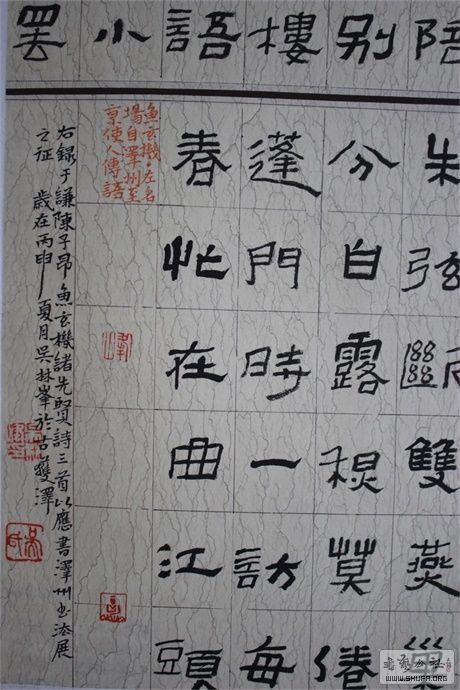 陪
别
樓
語
小
罷
朱弦斷雙燕巢
分白露秋莫倦
蓬門時一訪每
春忙在曲江頭
魚玄機·左名
場自澤州至
京使人傳語
右錄于謙陳子昂魚玄機諸先賢詩三首以應書澤州書法展
之征 歲在丙申夏月吳林峯於古濩澤
WWW.SHUFA.ORG